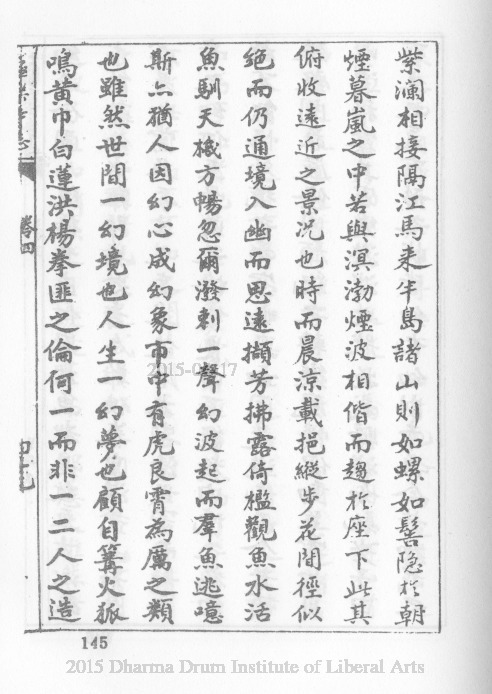 紫瀾相接隔江馬来半島諸山則如螺如髻隐於朝
煙暮嵐之中若與溟渤煙波相偕而趨於座下此其
俯收遠近之景況也時而晨凉載挹縱步花間徑似
絶而仍通境入幽而思遠擷芳拂露倚檻觀魚水活
魚馴天機方暢忽爾潑剌一聲幻波起而羣魚逃噫
斯亦猶人因幻心成幻象市中有虎良霄為厲之類
也雖然世間一幻境也人生一幻夢也顧自篝火狐
鳴黄巾白蓮洪楊拳匪之倫何一而非一二人之造
卷四
145
2015 Dharma Drum Institute of Liberal Arts